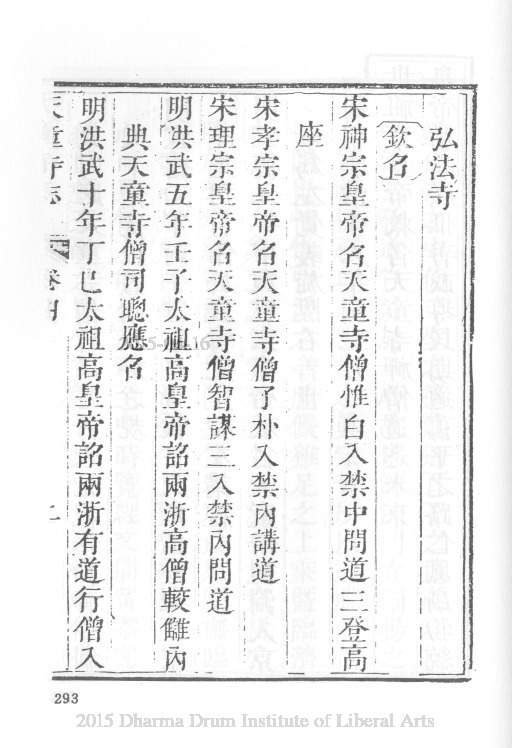 弘法寺
欽名
宋神宗皇帝名天童寺僧惟白入禁中問道三登高
座
宋孝宗皇帝名天童寺僧了朴入禁內講道
宋理宗皇帝名天童寺僧智謀三入禁內問道
明洪武五年壬子太祖高皇帝詔兩浙高僧較讎內
典天童寺僧司聰應名
明洪武十年丁巳太祖高皇帝詔兩浙有道行僧入
天童寺志 卷四
293
2015 Dharma Drum Institute of Liberal Arts